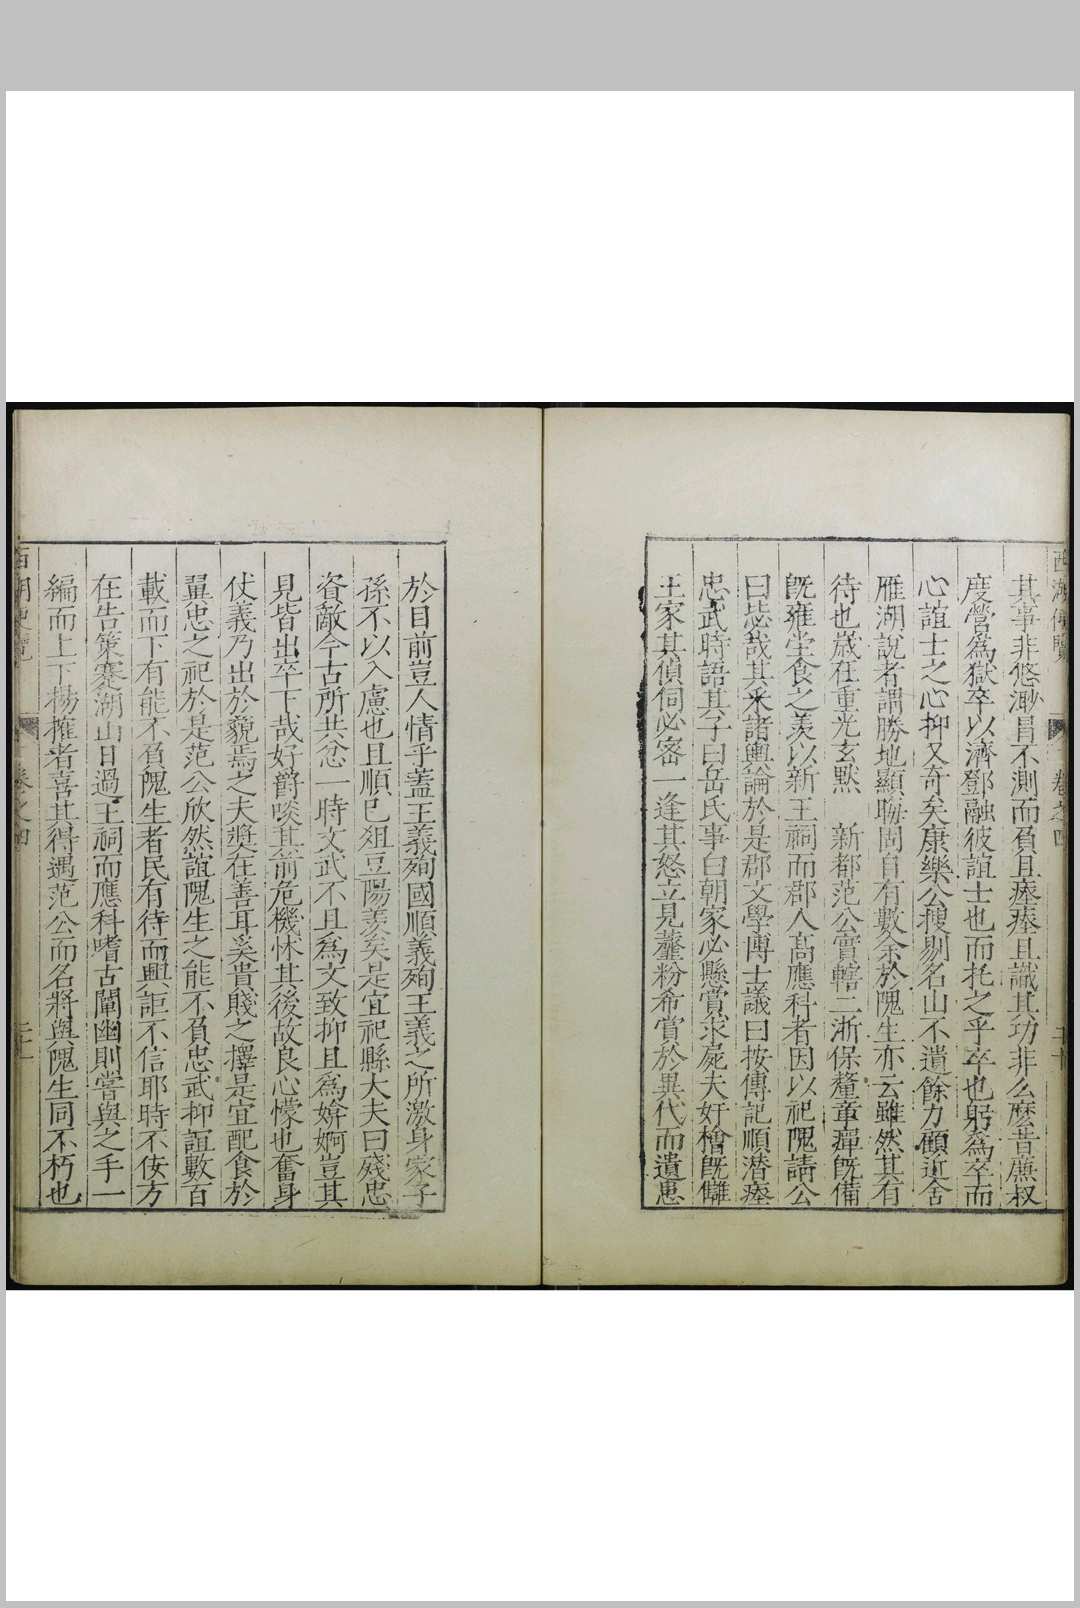 西湖便覽 卷之四
其事非悠渺冒不測而負且瘞瘞且識其功非么麼昔廉叔
度營為獄卒以濟鄧融彼誼士也而托之乎卒也躬為卒而
心誼士之心抑又奇矣康樂公搜剔名山不遺餘力顧近舍
雁湖說者謂勝地顯晦固自有數余於隗生亦云雖然其有
待也歲在重光玄黙 新都范公實轄二浙保釐章癉旣備
旣雍堂食之羨以新王祠而郡人高應科者因以祀隗請公
曰㤅哉其采諸輿論於是郡文學博士議曰按傳記順潜瘞
忠武時語其子曰岳氏事白朝家必懸賞求屍夫奸檜旣讎
王家其偵伺必密一逢其怒立見虀粉希賞於異代而遺患
於目前豈人情乎蓋王義殉國順義殉王義之所激身家子
孫不以入慮也且順已俎豆陽羨矣是宜祀縣大夫曰戕忠
資敵今古所共忿一時文武不且為文致抑且為媕婀豈其
見皆出卒下哉好爵啖其前危機怵其後故良心懞也奮身
伏義乃出於藐焉之夫奬在善耳奚貴賤之擇是宜配食於
翼忠之祀於是范公欣然誼隗生之能不負忠武抑誼數百
載而下有能不負隗生者民有待而興詎不信耶時不佞方
在告策蹇湖山日過王祠而應科嗜古闡幽則嘗與之手一
編而上下揚搉者喜其得遇范公而名將與隗生同不朽也
卷之四